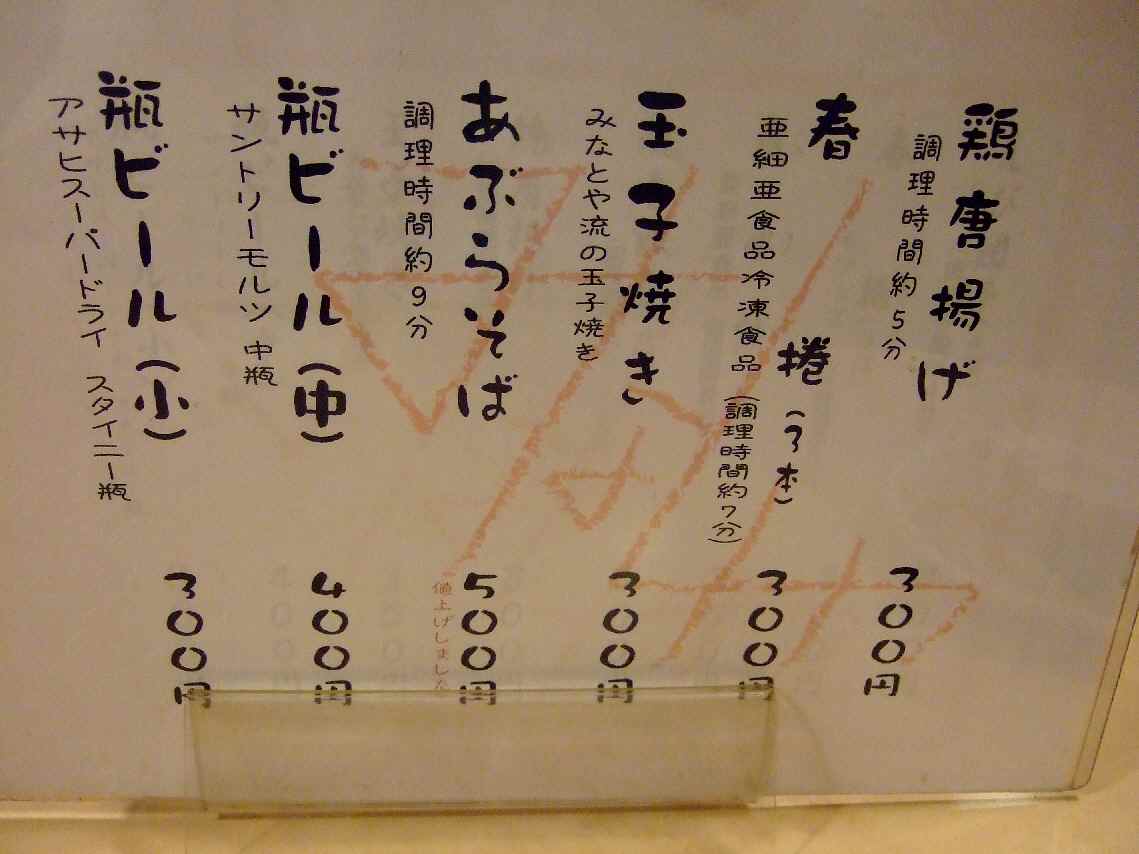 鶏唐揚げ
調理時間約5分
300円
春捲(3本)
亜細亜食品冷凍食品(調理時間約7分)
300円
玉子焼き
みなとや流の玉子焼き
300円
あぶらそば
調理時間約9分
500円
値上げしました
瓶ビール(中)
サントリーモルツ 中瓶
400円
瓶ビール(小)
アサヒスーパードライ スタイニー瓶
300円